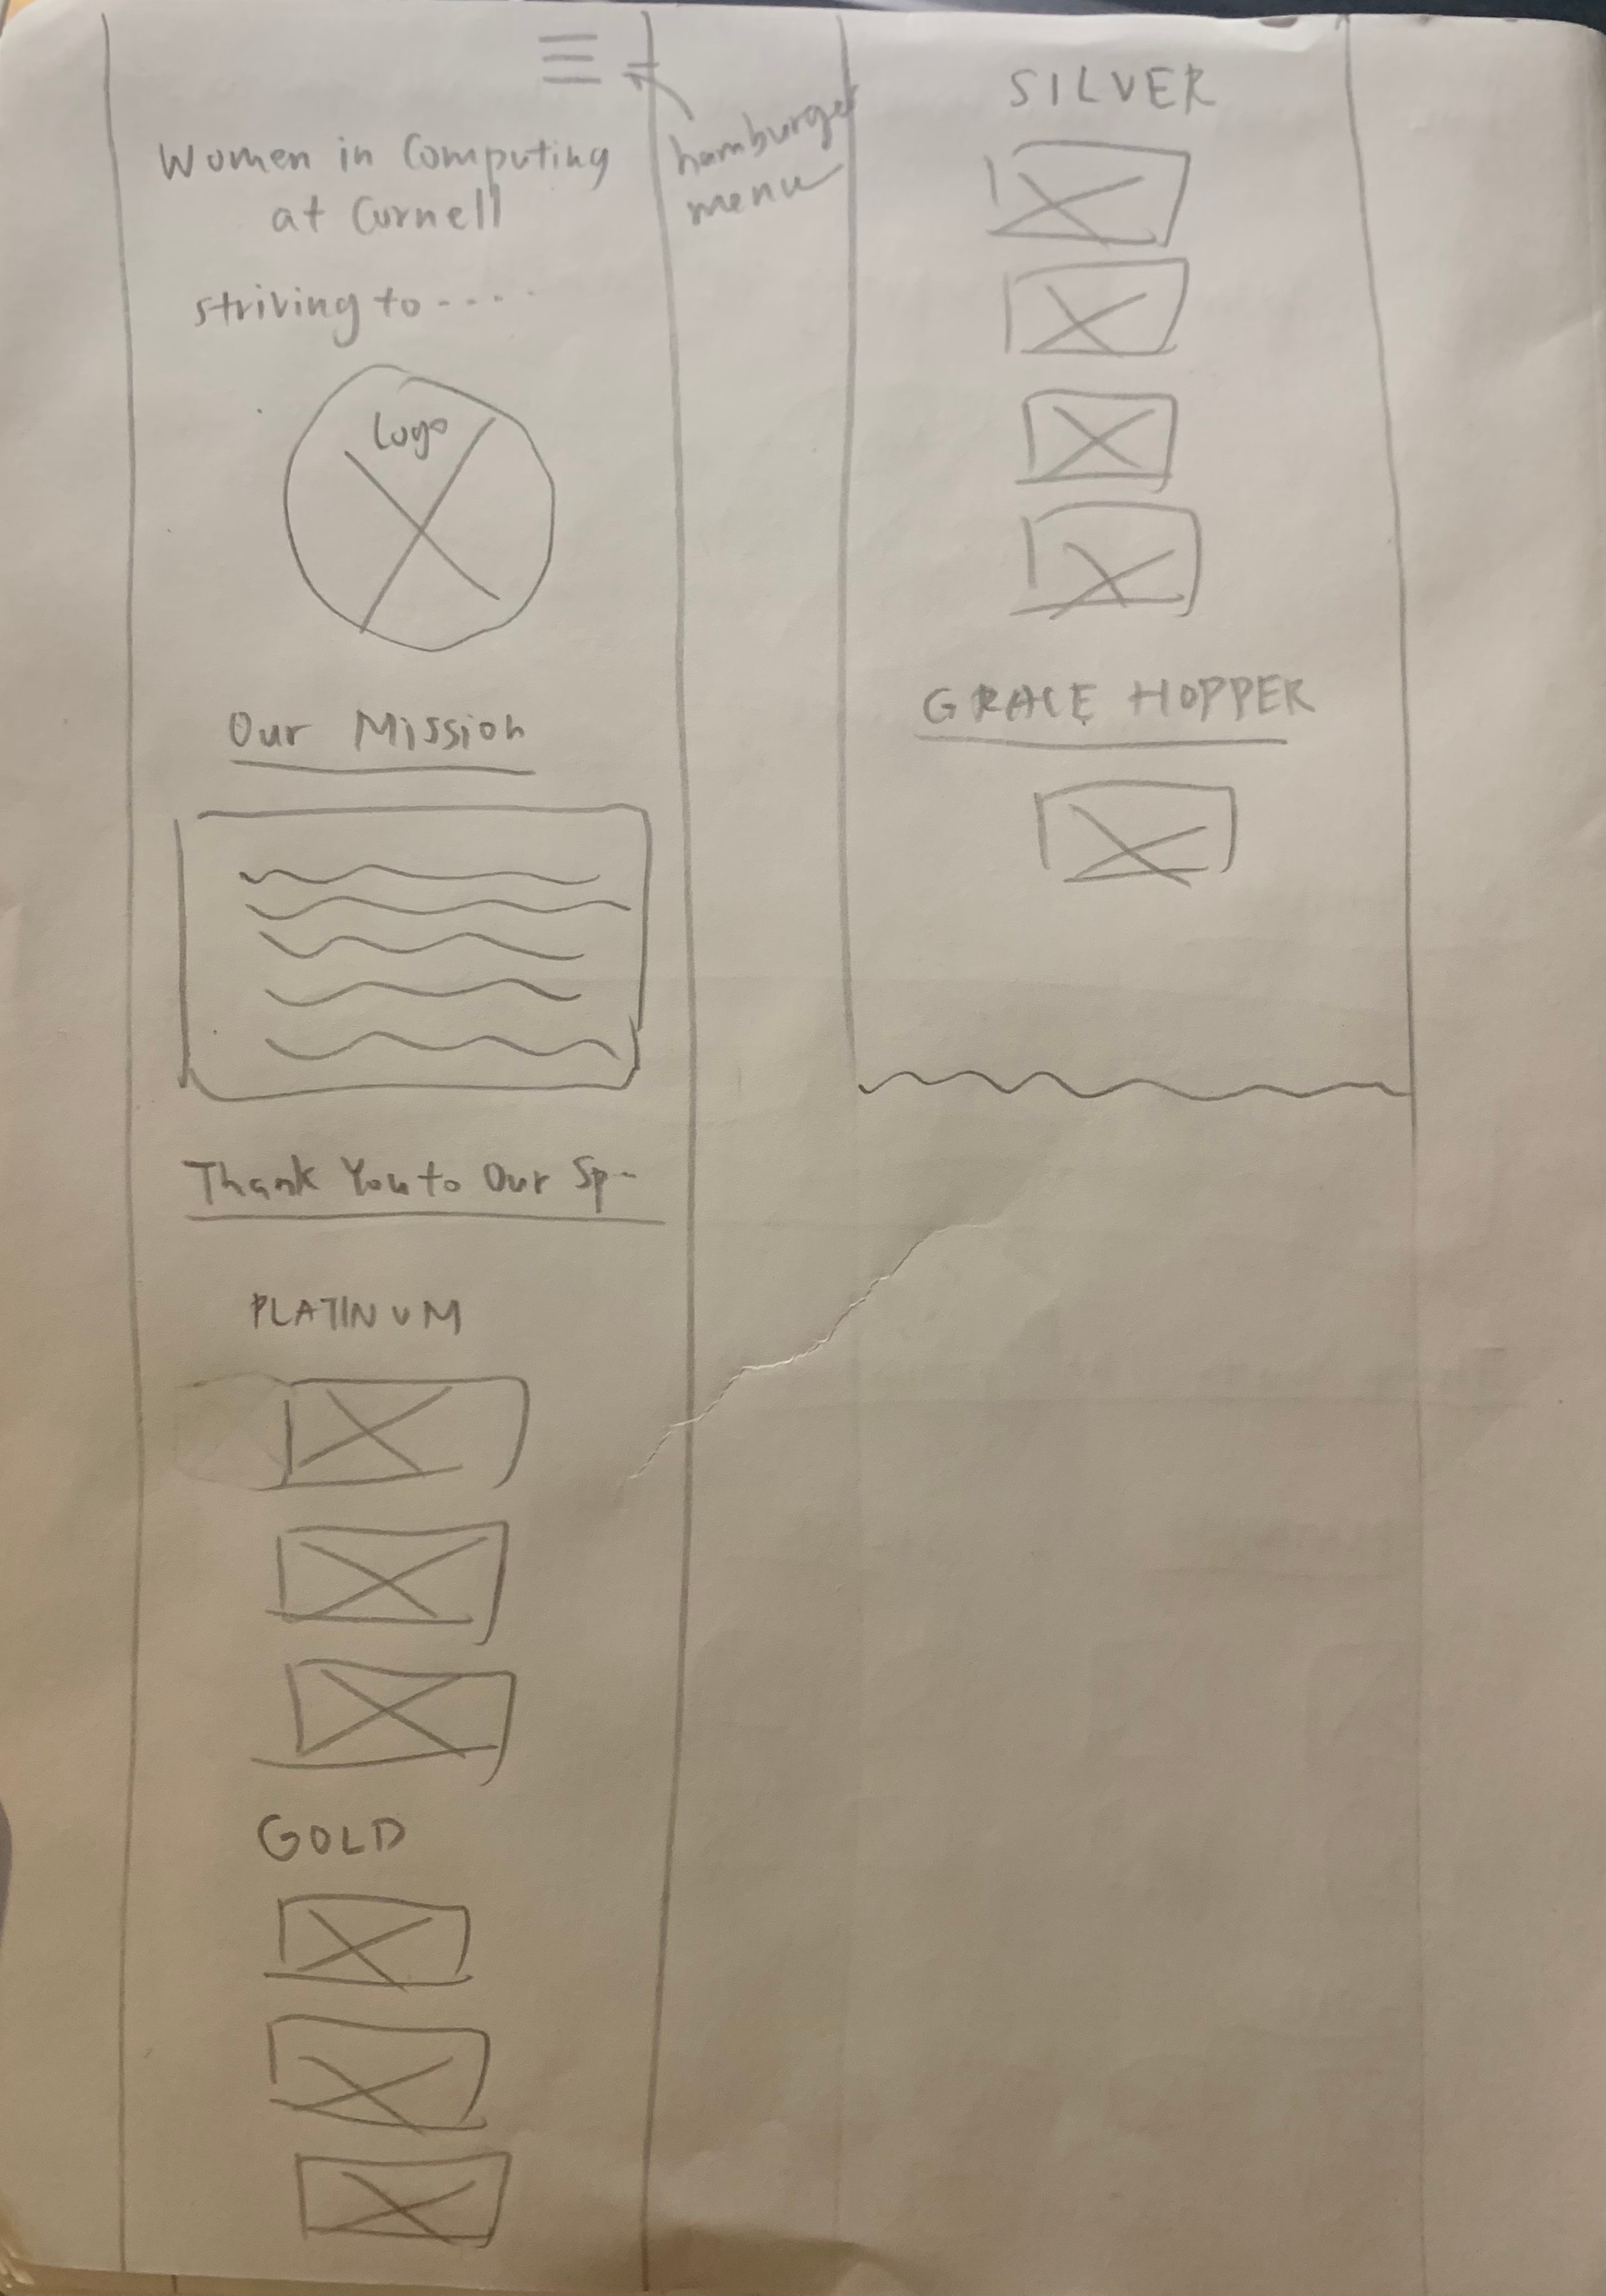 hamburger
menu
Women in Computing
at Cornell
striving to ....
Logo
Our Mission
Thank You to Our Sp--
PLATINUM
GOLD
SILVER
GRACE HOPPER